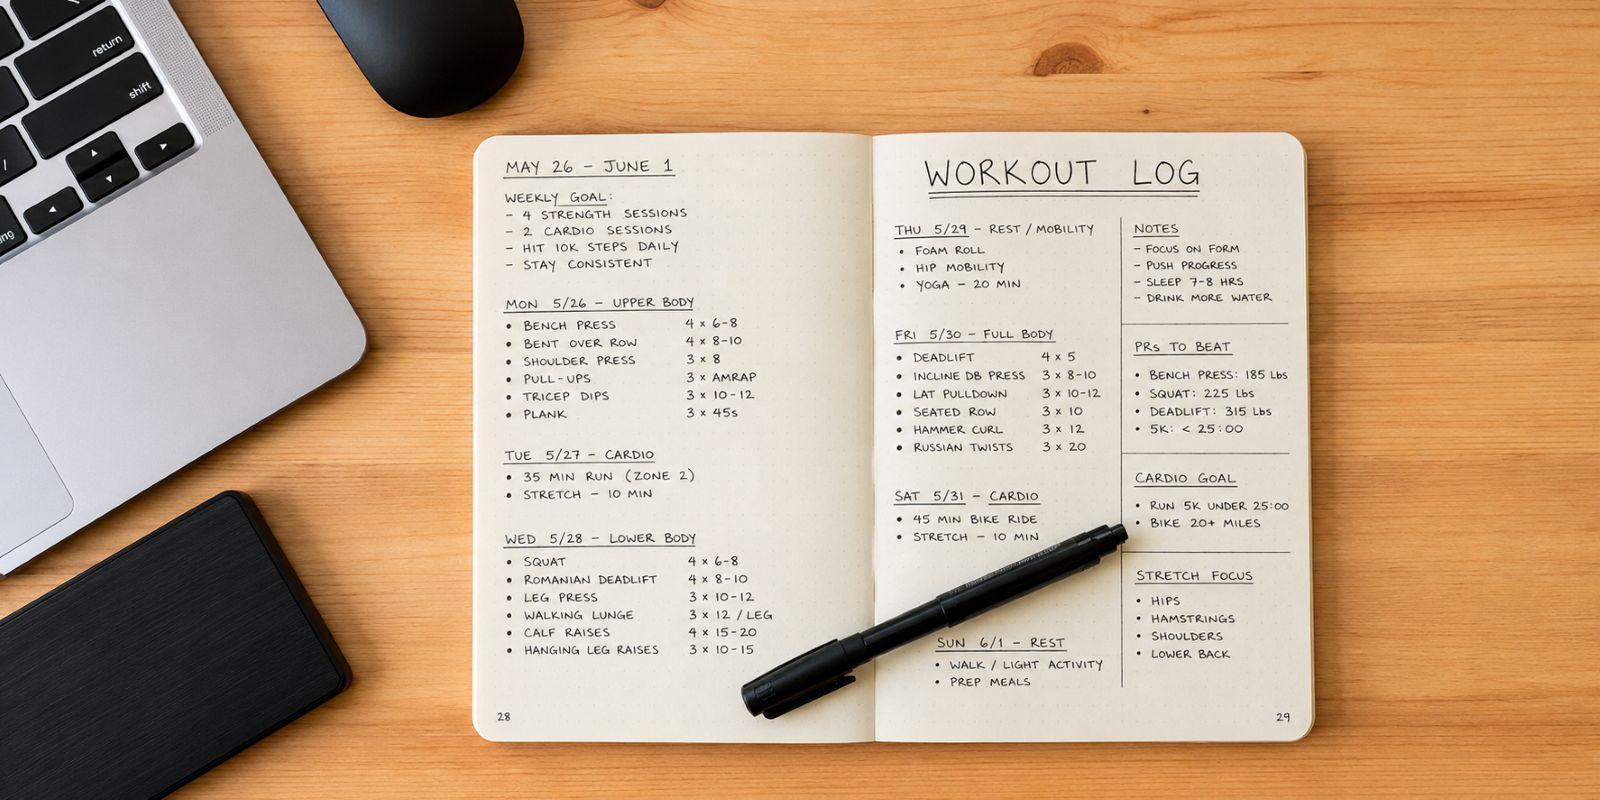 return
shift
/
ng
MAY 26 – JUNE 1
WEEKLY GOAL:
– 4 STRENGTH SESSIONS
– 2 CARDIO SESSIONS
– HIT 10K STEPS DAILY
– STAY CONSISTENT
MON 5/26 – UPPER BODY
• BENCH PRESS 4 × 6-8
• BENT OVER ROW 4 × 8-10
• SHOULDER PRESS 3 × 8
• PULL-UPS 3 × AMRAP
• TRICEP DIPS 3 × 10-12
• PLANK 3 × 45s
TUE 5/27 – CARDIO
• 35 MIN RUN (ZONE 2)
• STRETCH – 10 MIN
WED 5/28 – LOWER BODY
• SQUAT 4 × 6-8
• ROMANIAN DEADLIFT 4 × 8-10
• LEG PRESS 3 × 10-12
• WALKING LUNGE 3 × 12 / LEG
• CALF RAISES 4 × 15-20
• HANGING LEG RAISES 3 × 10-15
28
WORKOUT LOG
THU 5/29 – REST / MOBILITY
• FOAM ROLL
• HIP MOBILITY
• YOGA – 20 MIN
FRI 5/30 – FULL BODY
• DEADLIFT 4 × 5
• INCLINE DB PRESS 3 × 8-10
• LAT PULLDOWN 3 × 10-12
• SEATED ROW 3 × 10
• HAMMER CURL 3 × 12
• RUSSIAN TWISTS 3 × 20
SAT 5/31 – CARDIO
• 45 MIN BIKE RIDE
• STRETCH – 10 MIN
SUN 6/1 – REST
• WALK / LIGHT ACTIVITY
• PREP MEALS
NOTES
– FOCUS ON FORM
– PUSH PROGRESS
– SLEEP 7-8 HRS
– DRINK MORE WATER
PRs TO BEAT
• BENCH PRESS: 185 Lbs
• SQUAT: 225 Lbs
• DEADLIFT: 315 Lbs
• 5K: < 25:00
CARDIO GOAL
• RUN 5K UNDER 25:00
• BIKE 20+ MILES
STRETCH FOCUS
• HIPS
• HAMSTRINGS
• SHOULDERS
• LOWER BACK
29